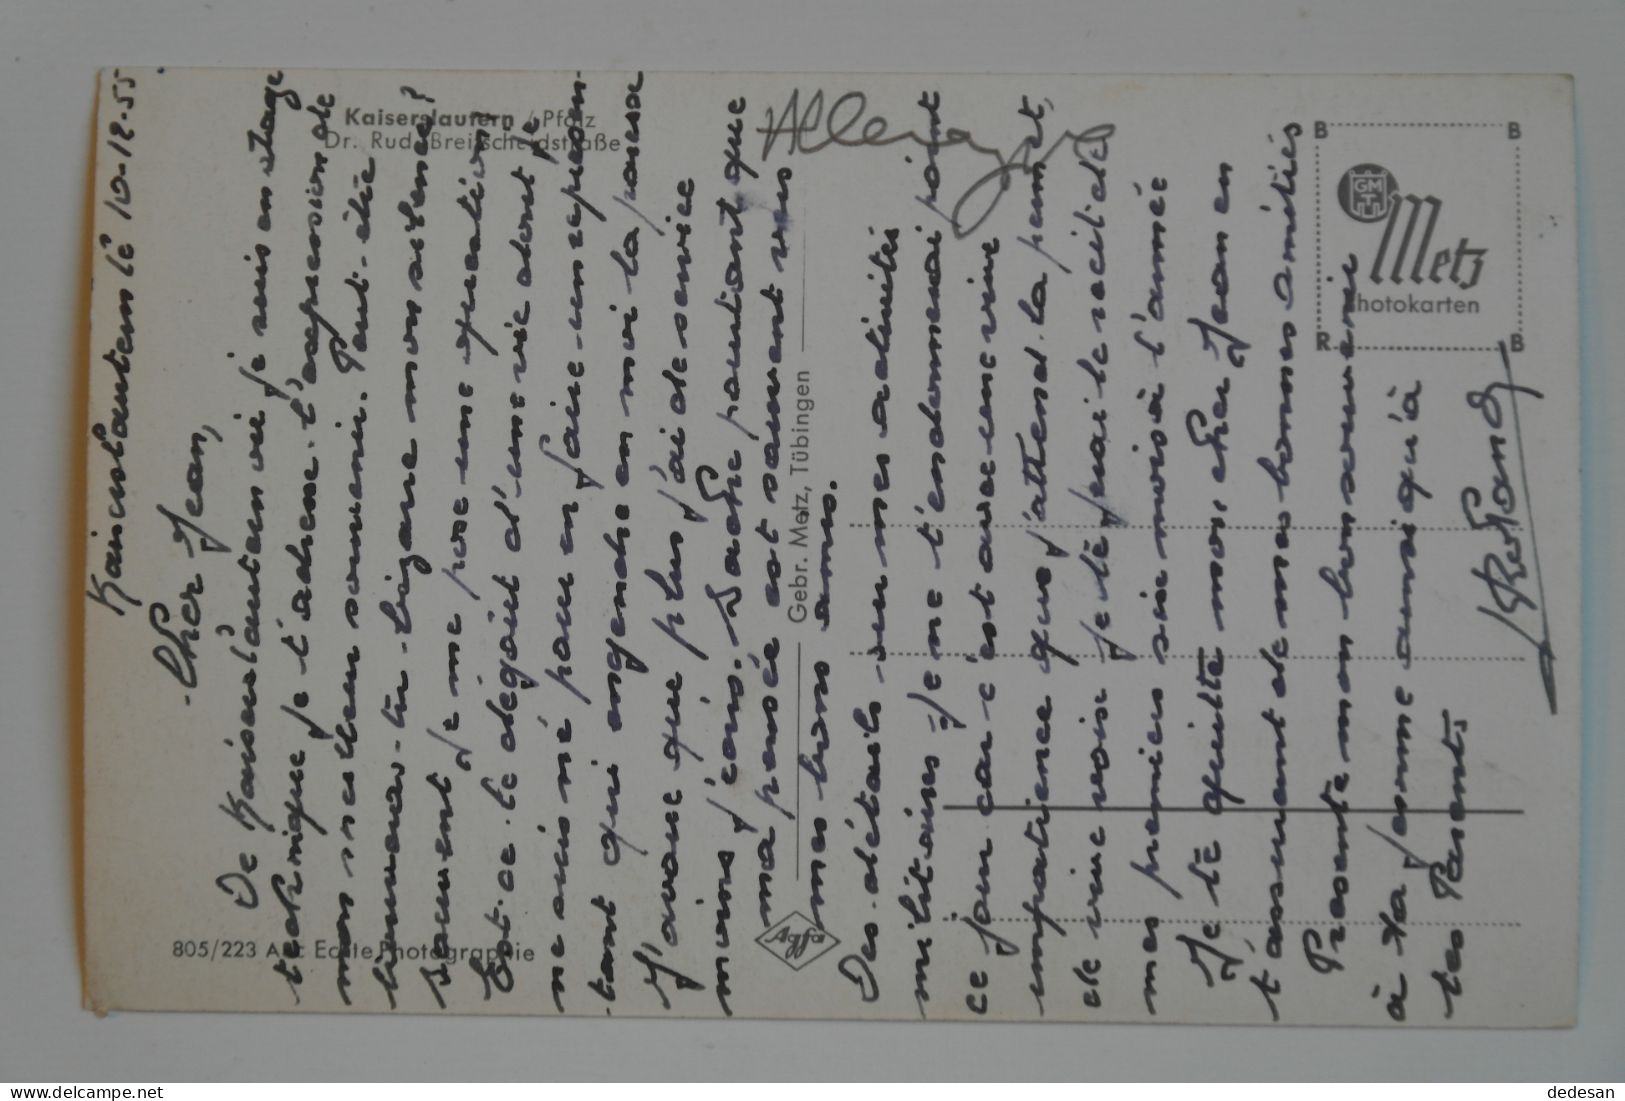 Kaiserslautern / Pfalz
Dr. Rud. Breitscheidstraße
Allemagne
B B
GM
Metz
Photokarten
R B
Gebr. Metz, Tübingen
Agfa
805/223 A Echte Photographie
Kaiserslautern le 10-12-55
Cher Jean,
De Kaiserslautern où je suis en stage
technique je t'adresse l'expression de
mon meilleur souvenir. Peut-être
trouveras-tu bizarre mon silence?
Souvent je me pose une question
Est-ce le dégoût d'une vie dont je
ne suis né pour en faire un représen-
tant qui engendre en moi la paresse
J'avoue que plus j'ai de service
moins j'écris. Sache pourtant que
ma pensée est souvent vers
mes bons amis.
Des détails sur mes activités
militaires je ne t'en donnerai point
ce jour car c'est avec une vive
impatience que j'attend la perm et,
de vive voix je te ferai le récit de
mes premiers six mois à l'armée
Je te quitte mon cher Jean en
t'assurant de mes bonnes amitiés
Présente mon bon souvenir
à ta femme ainsi qu'à
tes Parents.
dedesan